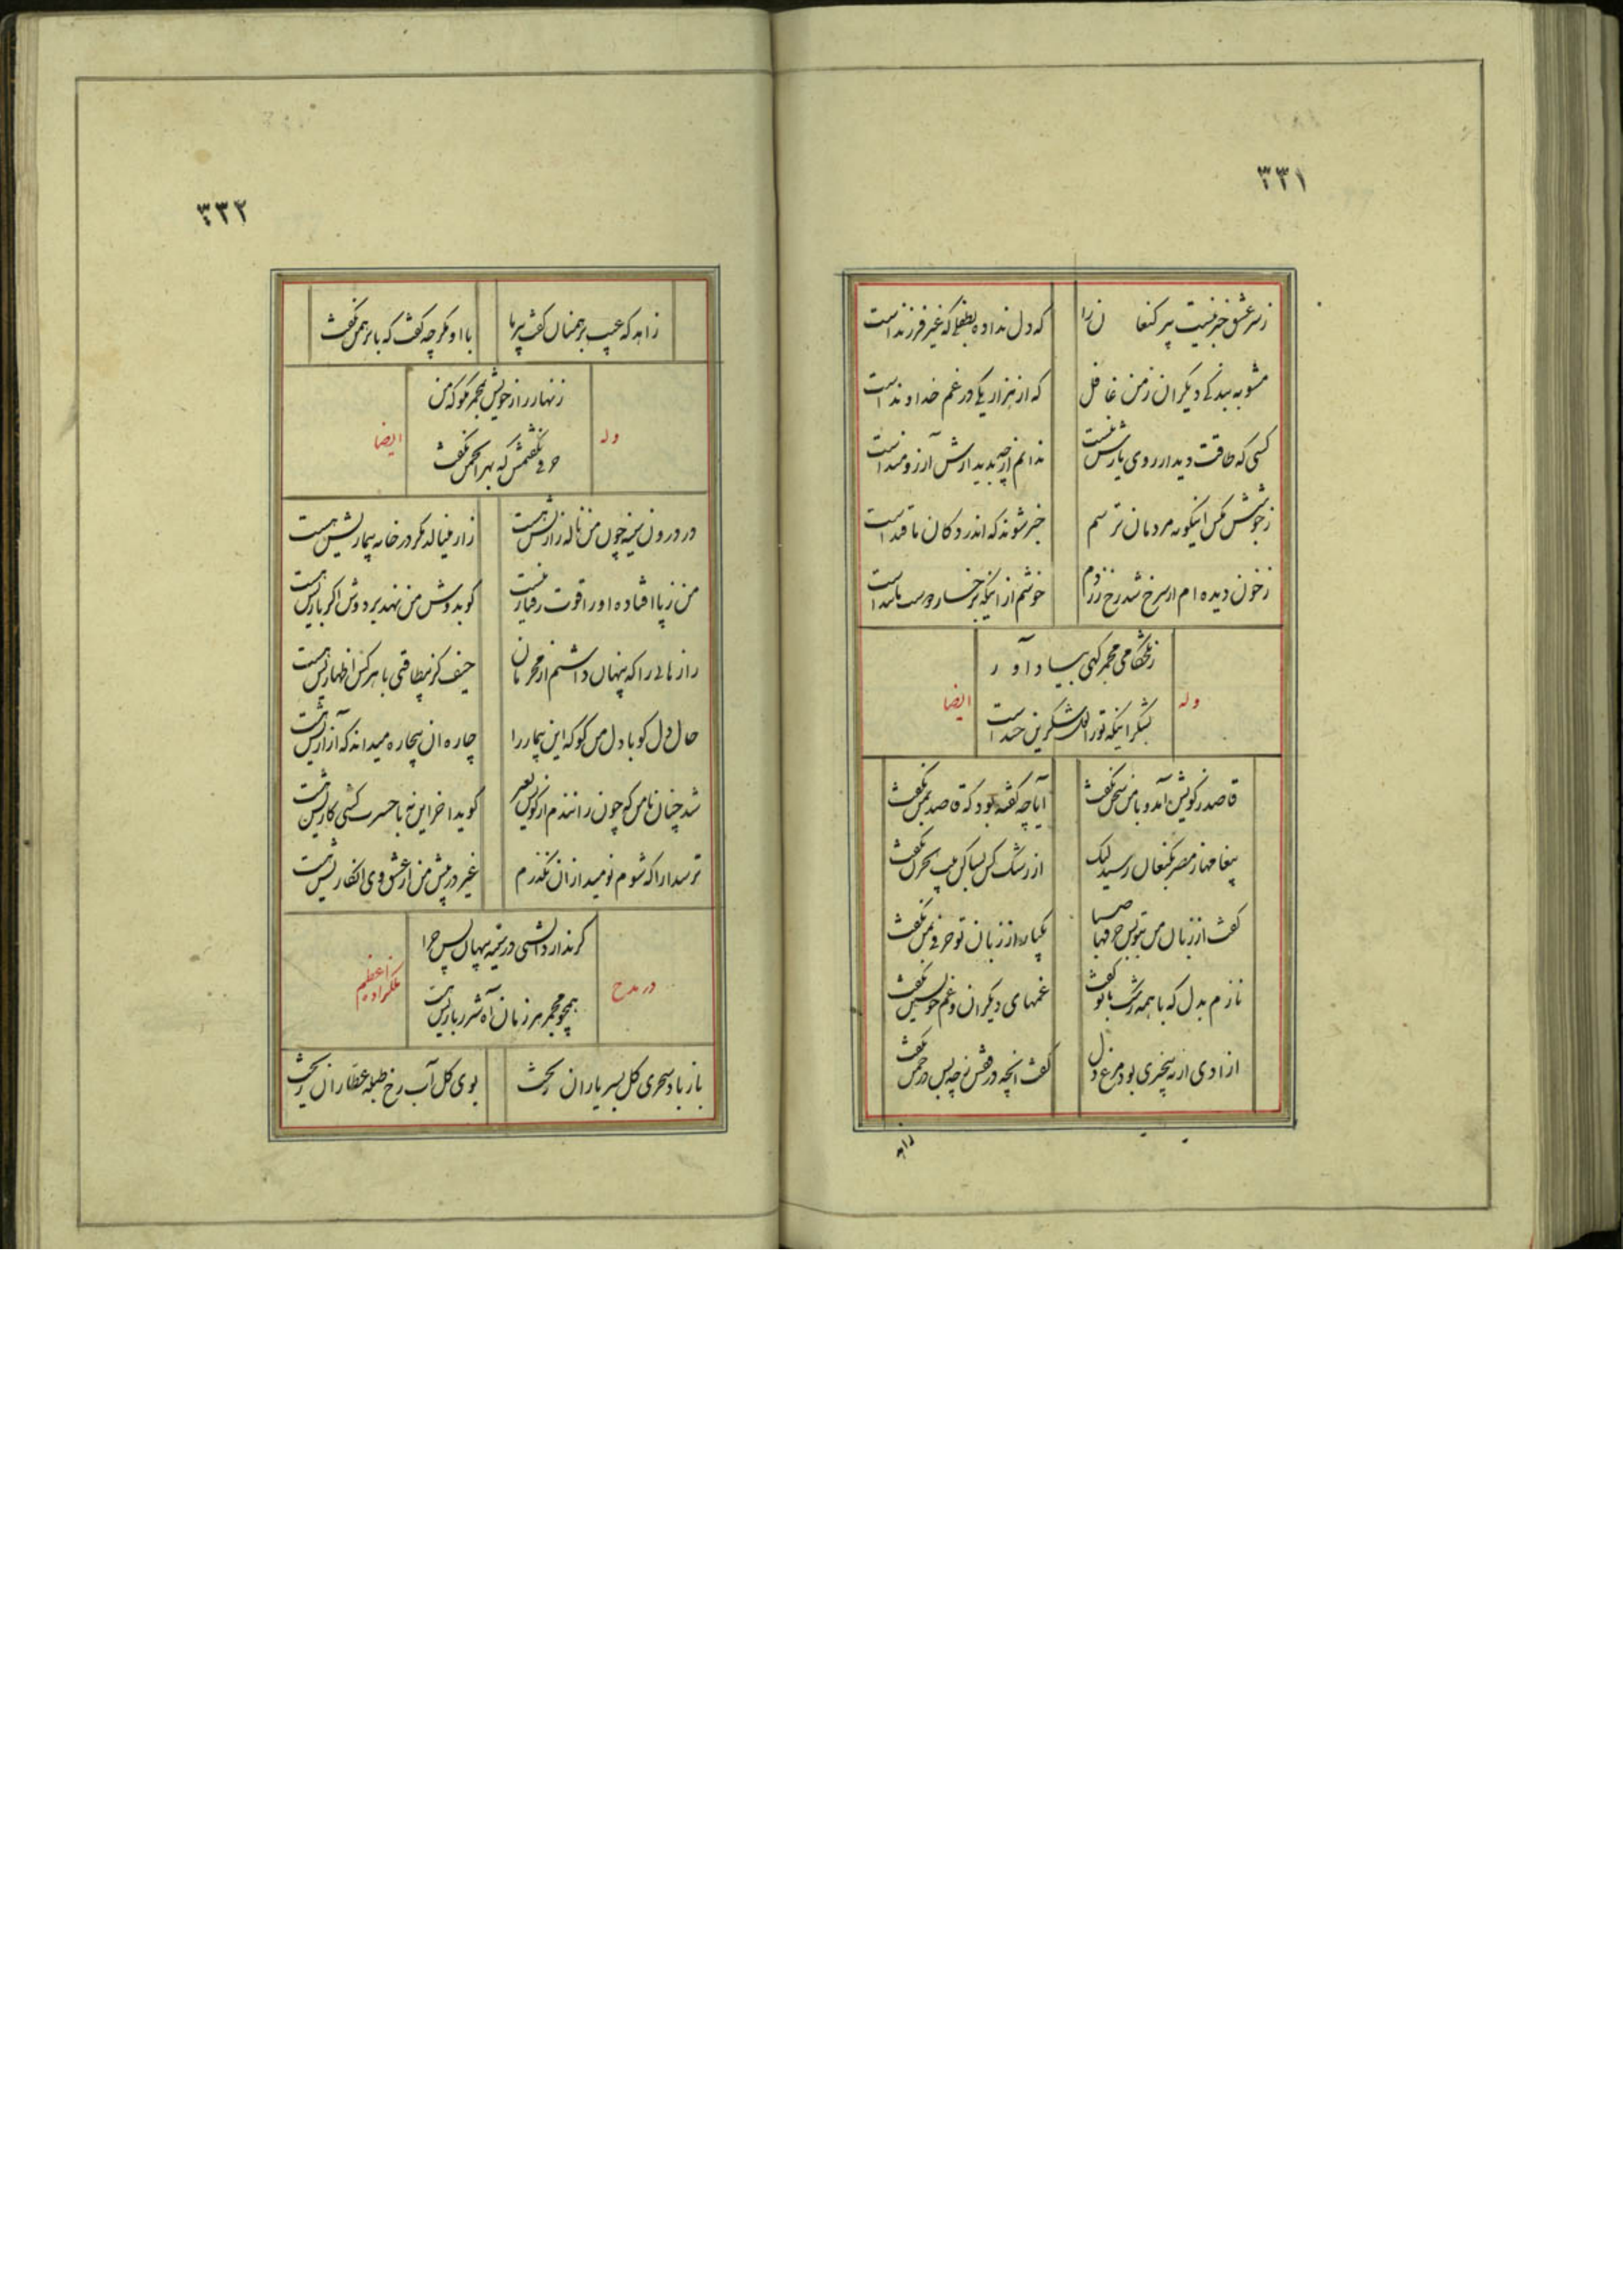 ۳۳۱
ز سر عشق خبر نیست پیر کنعا ن را که دل نداده بطفلی که غیر فرزند است
مشو به بندگی دیگران ز من غافل که از هزار یکی در غم خداوند است
کسی که طاقت دیدار روی یارش نیست ندانم از چه بدیدارش آرزومند است
ز جوشش مگس اینگونه مردمان ترسم خبر شوند که اندر دکان ما قند است
ز خون دیده ام ار سرخ شد رخ زردم خوشم از اینکه بر خسار دوست مانند است
ز تلخکامی مجمر گهی بیاد آور
وله
ایضا
بشکر اینکه تو را لب شکرین خند است
قاصد ز کویش آمد و با من سخن نگفت آیا چه گفته بود که قاصد بمن نگفت
پیغامها ز مصر بکنعان رسید لیک از رشک کس بساکن بیت الحزن نگفت
گفت از زبان من بتو بس حرفها صبا یکباره از زبان تو حرفی بمن نگفت
نازم بدل که با همه رشک با تو گفت غمهای دیگران و غم خویشتن نگفت
ازادی ار نه بیخبری بود مرغ دل گفت انچه در قفس ز چه پس در چمن نگفت
زاهد
۳۳۲
زاهد که عیب برهمنان گفت پیر ما با او مگر چه گفت که با برهمن نگفت
زنهار راز خویش بمجمر مگو که من
وله
ایضا
حرفی نگفتمش که بهر انجمن نگفت
در درون سینه چون من ناله زاریش هست زار مینالد مگر در خانه بیماریش هست
من ز پا افتاده او را قوت رفتار نیست گو بدوش من نهد بر دوش اگر باریش هست
راز هائی را که پنهان داشتم از محرمان حیف کز بیطاقتی با هر کس اظهاریش هست
حال دل گو با دل من گو که این بیمار را چاره ان بیچاره میداند که آزاریش هست
شد چنان نامم که چون رانندم از کویش بعیر گوید اخر این نه با حسرت کشی کاریش هست
ترسد ارا که شوم نومید ازان نگذرم غیر در پیش من از عشق وی انکاریش هست
گر ندارد اتشی در سینه پنهان پس چرا
در مدح
ملکزاده اعظم
همچو مجمر هر زمان آه شرر باریش هست
باز باد سحری گل بسر یاران ریخت بوی گل آب رخ طبله عطاران ریخت